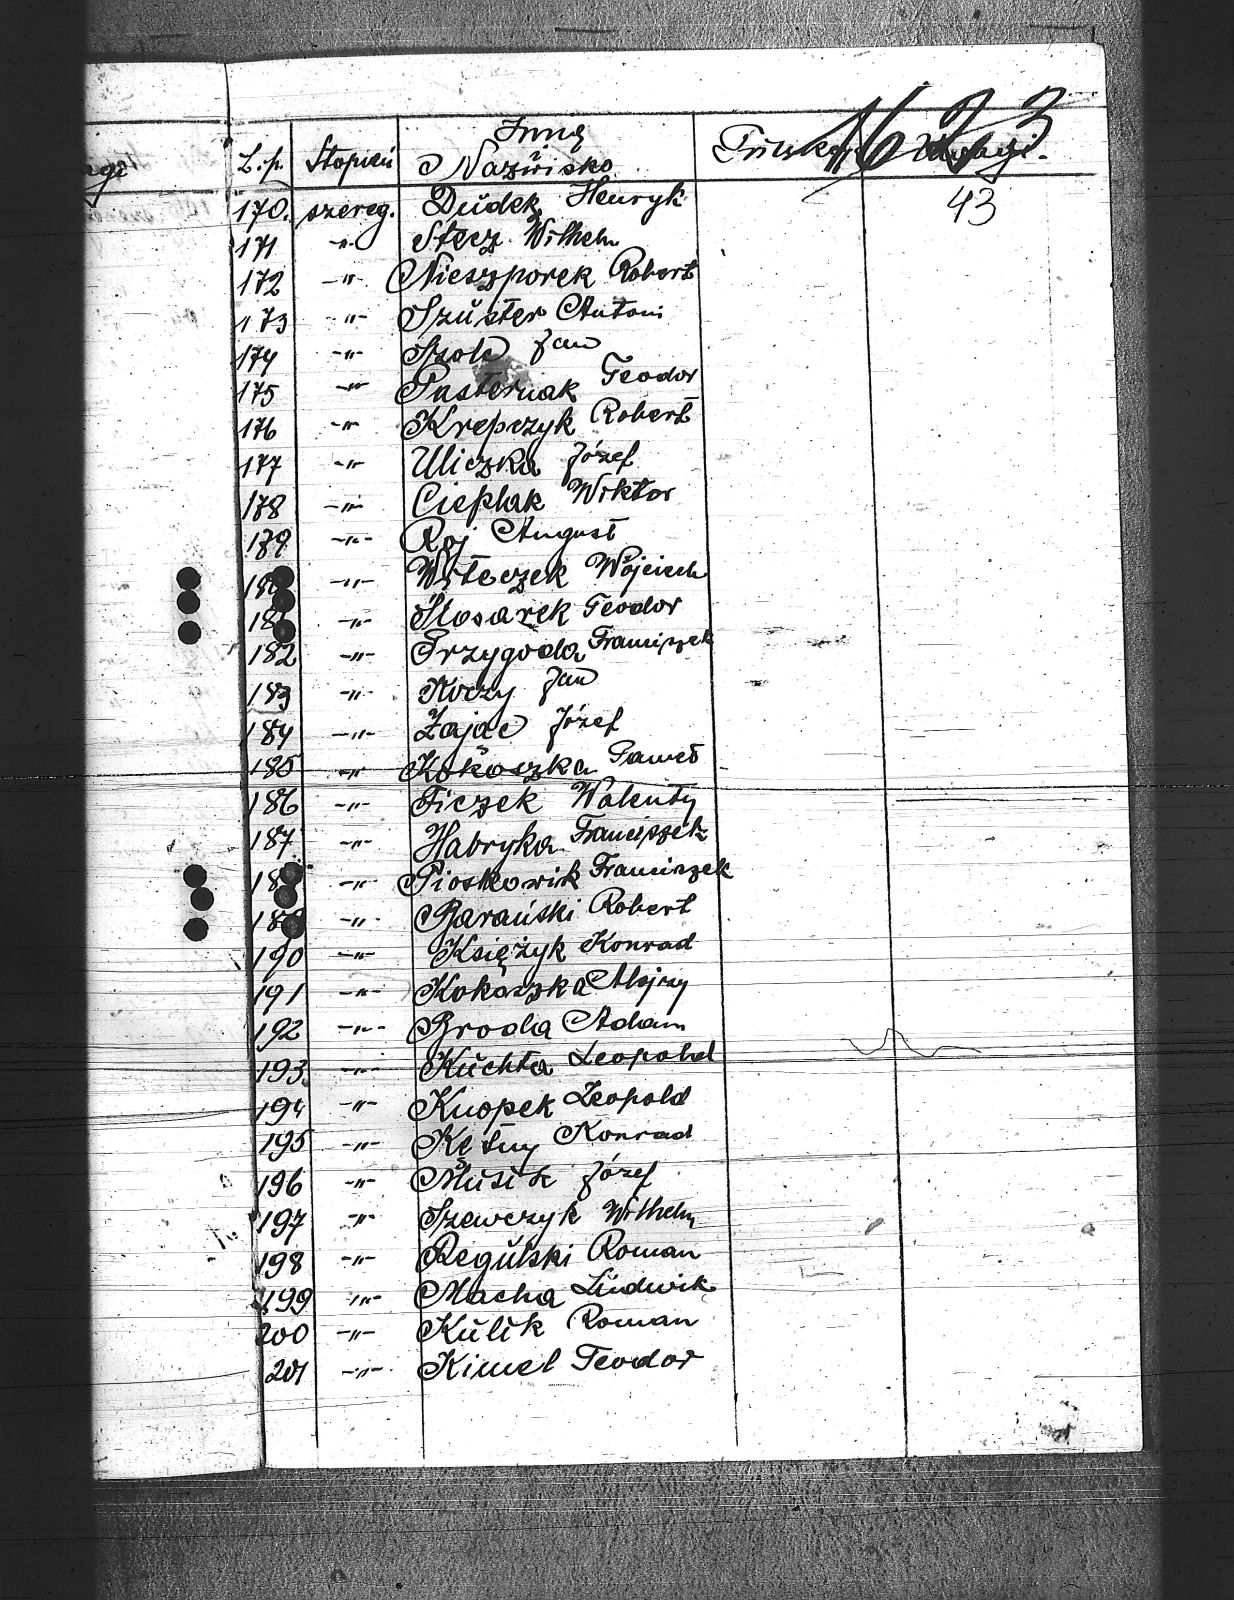 1623
L.p. Stopień Imię i Nazwisko Funkcja Uwagi.
43
170. szereg. Dudek Henryk
171 -"- Stecz Wilhelm
172 -"- Nieszporek Robert
173 -"- Szuster Antoni
174 -"- Szole Jan
175 -"- Pasternak Teodor
176 -"- Krepczyk Robert
177 -"- Uliczka Józef
178 -"- Cieplak Wiktor
179 -"- Roj August
180 -"- Witeczek Wojciech
181 -"- Ślosarek Teodor
182 -"- Przygoda Franciszek
183 -"- Koczy Jan
184 -"- Zając Józef
185 -"- Kokoszka Paweł
186 -"- Ficzek Walenty
187 -"- Habryka Franciszek
188 -"- Pioskowik Franciszek
189 -"- Barański Robert
190 -"- Księżyk Konrad
191 -"- Kokoszka Alojzy
192 -"- Broda Adam
193 -"- Kuchta Leopold
194 -"- Knopek Leopold
195 -"- Kętny Konrad
196 -"- Musik Józef
197 -"- Szewczyk Wilhelm
198 -"- Regulski Roman
199 -"- Macha Ludwik
200 -"- Kulik Roman
201 -"- Kimel Teodor